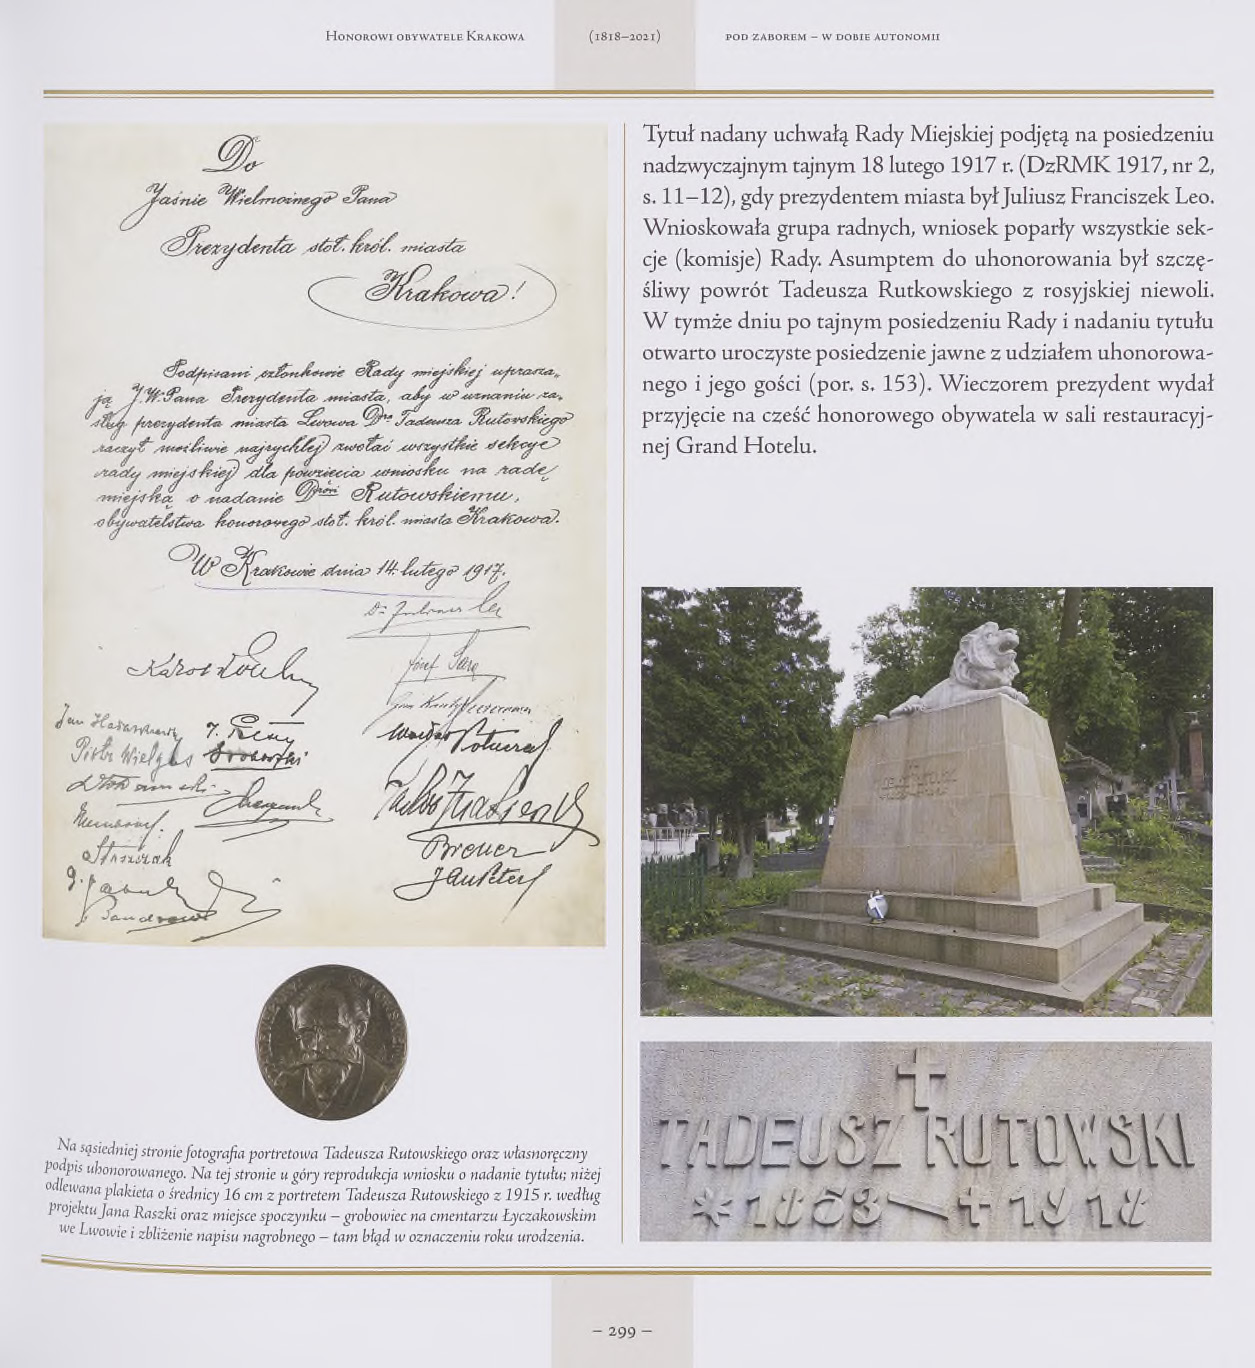 HONOROWI OBYWATELE KRAKOWA (1818–2021) POD ZABOREM – W DOBIE AUTONOMII
Do
Jaśnie Wielmożnego Pana
Prezydenta stoł. król. miasta
Krakowa!
Podpisani członkowie Rady miejskiej uprasza„
ją J.W. Pana Prezydenta miasta, aby w uznaniu za„
sług prezydenta miasta Lwowa Dra Tadeusza Rutowskiego
raczył możliwie najrychlej zwołać wszystkie sekcye
rady miejskiej dla powzięcia wniosku na radę
miejską o nadanie Drowi Rutowskiemu,
obywatelstwa honorowego stoł. król. miasta Krakowa.
W Krakowie dnia 14. lutego 1917.
Dr Juliusz Leo
Józef Sare
Piotr Wielgus
Breuer
Tytuł nadany uchwałą Rady Miejskiej podjętą na posiedzeniu
nadzwyczajnym tajnym 18 lutego 1917 r. (DzRMK 1917, nr 2,
s. 11–12), gdy prezydentem miasta był Juliusz Franciszek Leo.
Wnioskowała grupa radnych, wniosek poparły wszystkie sek-
cje (komisje) Rady. Asumptem do uhonorowania był szczę-
śliwy powrót Tadeusza Rutkowskiego z rosyjskiej niewoli.
W tymże dniu po tajnym posiedzeniu Rady i nadaniu tytułu
otwarto uroczyste posiedzenie jawne z udziałem uhonorowa-
nego i jego gości (por. s. 153). Wieczorem prezydent wydał
przyjęcie na cześć honorowego obywatela w sali restauracyj-
nej Grand Hotelu.
TADEUSZ RUTOWSKI
*1853–+1918
Na sąsiedniej stronie fotografia portretowa Tadeusza Rutowskiego oraz własnoręczny
podpis uhonorowanego. Na tej stronie u góry reprodukcja wniosku o nadanie tytułu; niżej
odlewana plakieta o średnicy 16 cm z portretem Tadeusza Rutowskiego z 1915 r. według
projektu Jana Raszki oraz miejsce spoczynku – grobowiec na cmentarzu Łyczakowskim
we Lwowie i zbliżenie napisu nagrobnego – tam błąd w oznaczeniu roku urodzenia.
– 299 –